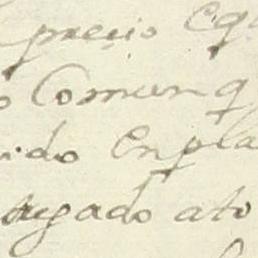 preçio equ
o Comun q
ido enpla
ugado ato